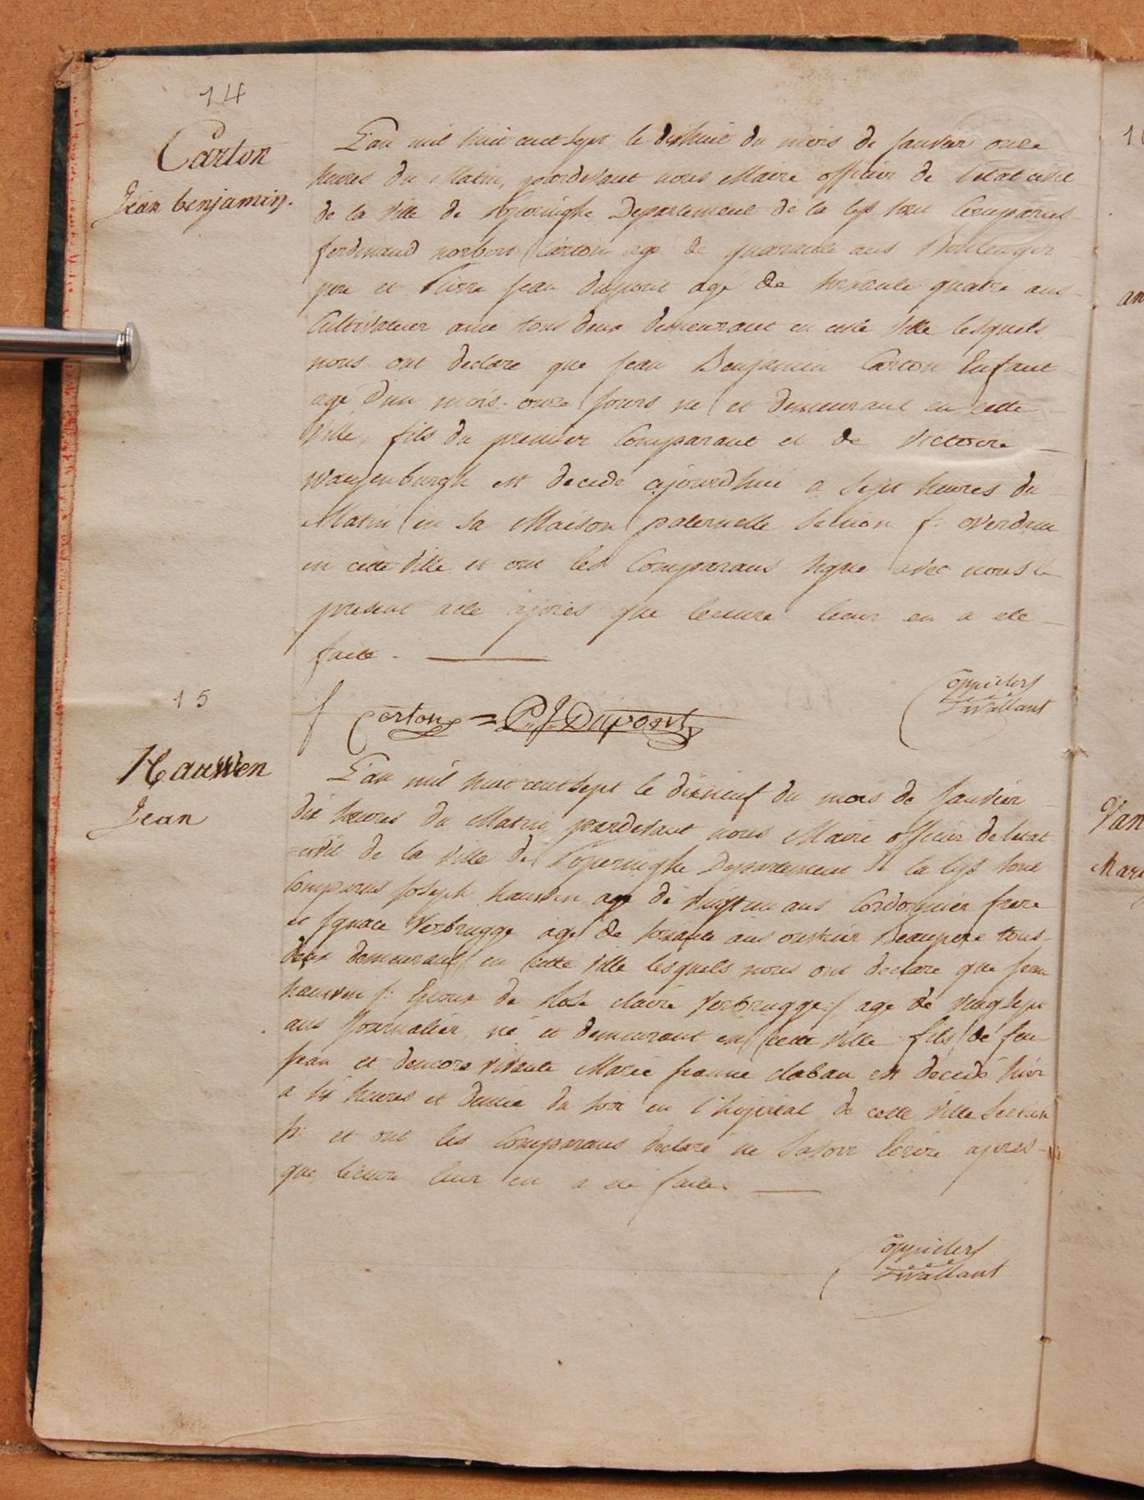 14
Carton
Jean benjamin.
L'an mil huit cent sept le dixhuit du mois de Janvier onze
heures du Matin, pardevant nous Maire officier de l'etat civil
de la Ville de Poperinghe Departement de la lys sont Comparus
ferdinand norbert Carton age de quarante ans Boulenger
pere et Pierre Jean dupont age de trente quatre ans
Cultivateur amie tous deux demeurant en cette Ville lesquels
nous ont declare que Jean Benjamin Carton Enfant
age d'un mois onze jours ne et demeurant en cette
Ville, fils du premier Comparant et de Victoire
est decedé ajourdhui a sept heures du
Matin en sa Maison paternelle Section f:
en cette Ville et ont les Comparans signe avec nous le
present acte apres que lecture leur en a ete
faite.
f Carton = P. J. Dupont
15
Hauwen
Jean
L'an mil huit cent sept le dixneuf du mois de Janvier
dix heures du Matin, pardevant nous Maire officier de l'etat
civil de la Ville de Poperinghe Departement de la lys sont
Comparus Joseph hauwen age de vingt un ans Cordonnier frere
et Ignace Verbrugge age de soixante ans ouvrier Beaupere tous
deux demeurant en cette Ville lesquels nous ont declare que Jean
hauwen f: Epoux de Rose claire Verbrugge f age de vingt sept
ans Journalier, né et demeurant en cette Ville fils de feu
Jean et d'encore vivante Marie Jeanne claban est décedé hier
a six heures et demie du soir en l'hopital de cette Ville Section
f: et ont les Comparans declaré ne savoir Ecrire apres
que lecture leur en a été faite.